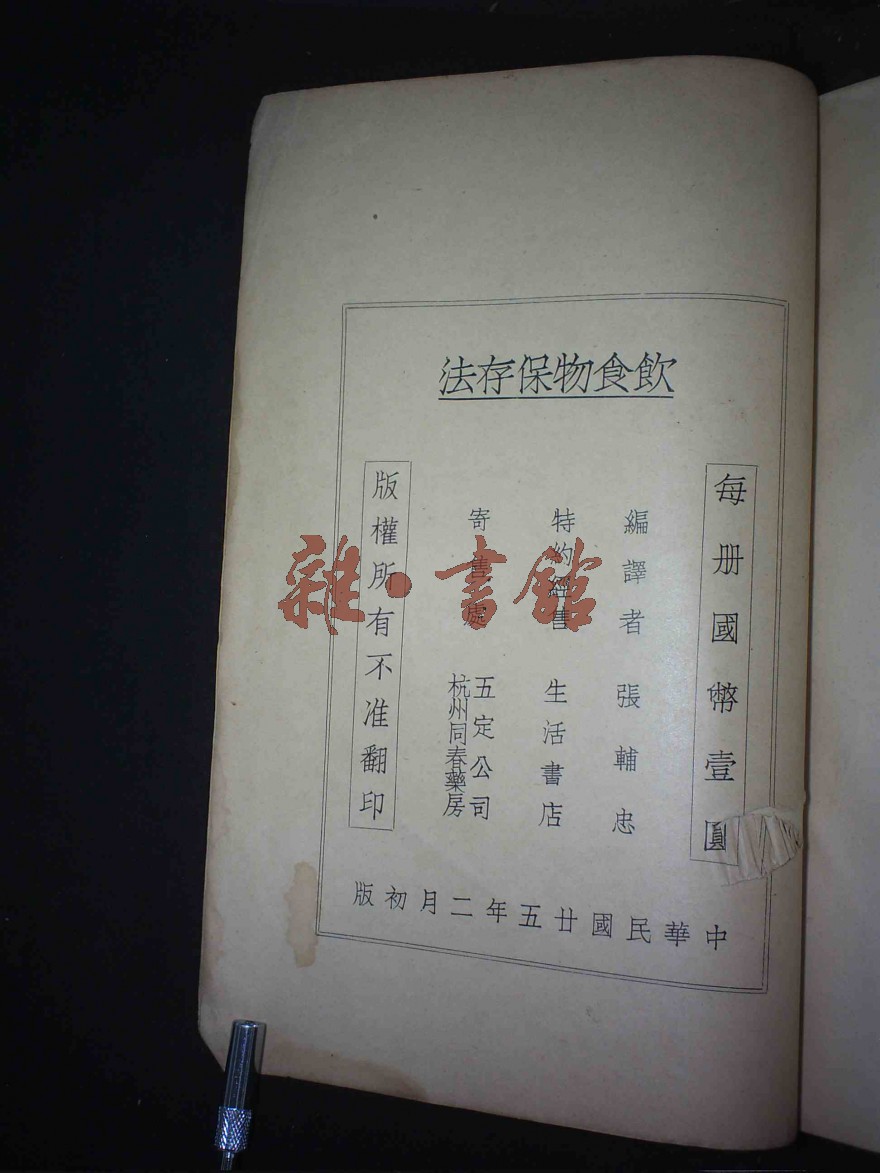 飲食物保存法
每册國幣壹圓
編譯者 張輔忠
特約經售 生活書店
寄售處 五定公司
杭州同春藥房
版權所有不准翻印
中華民國廿五年二月初版
雜·書館